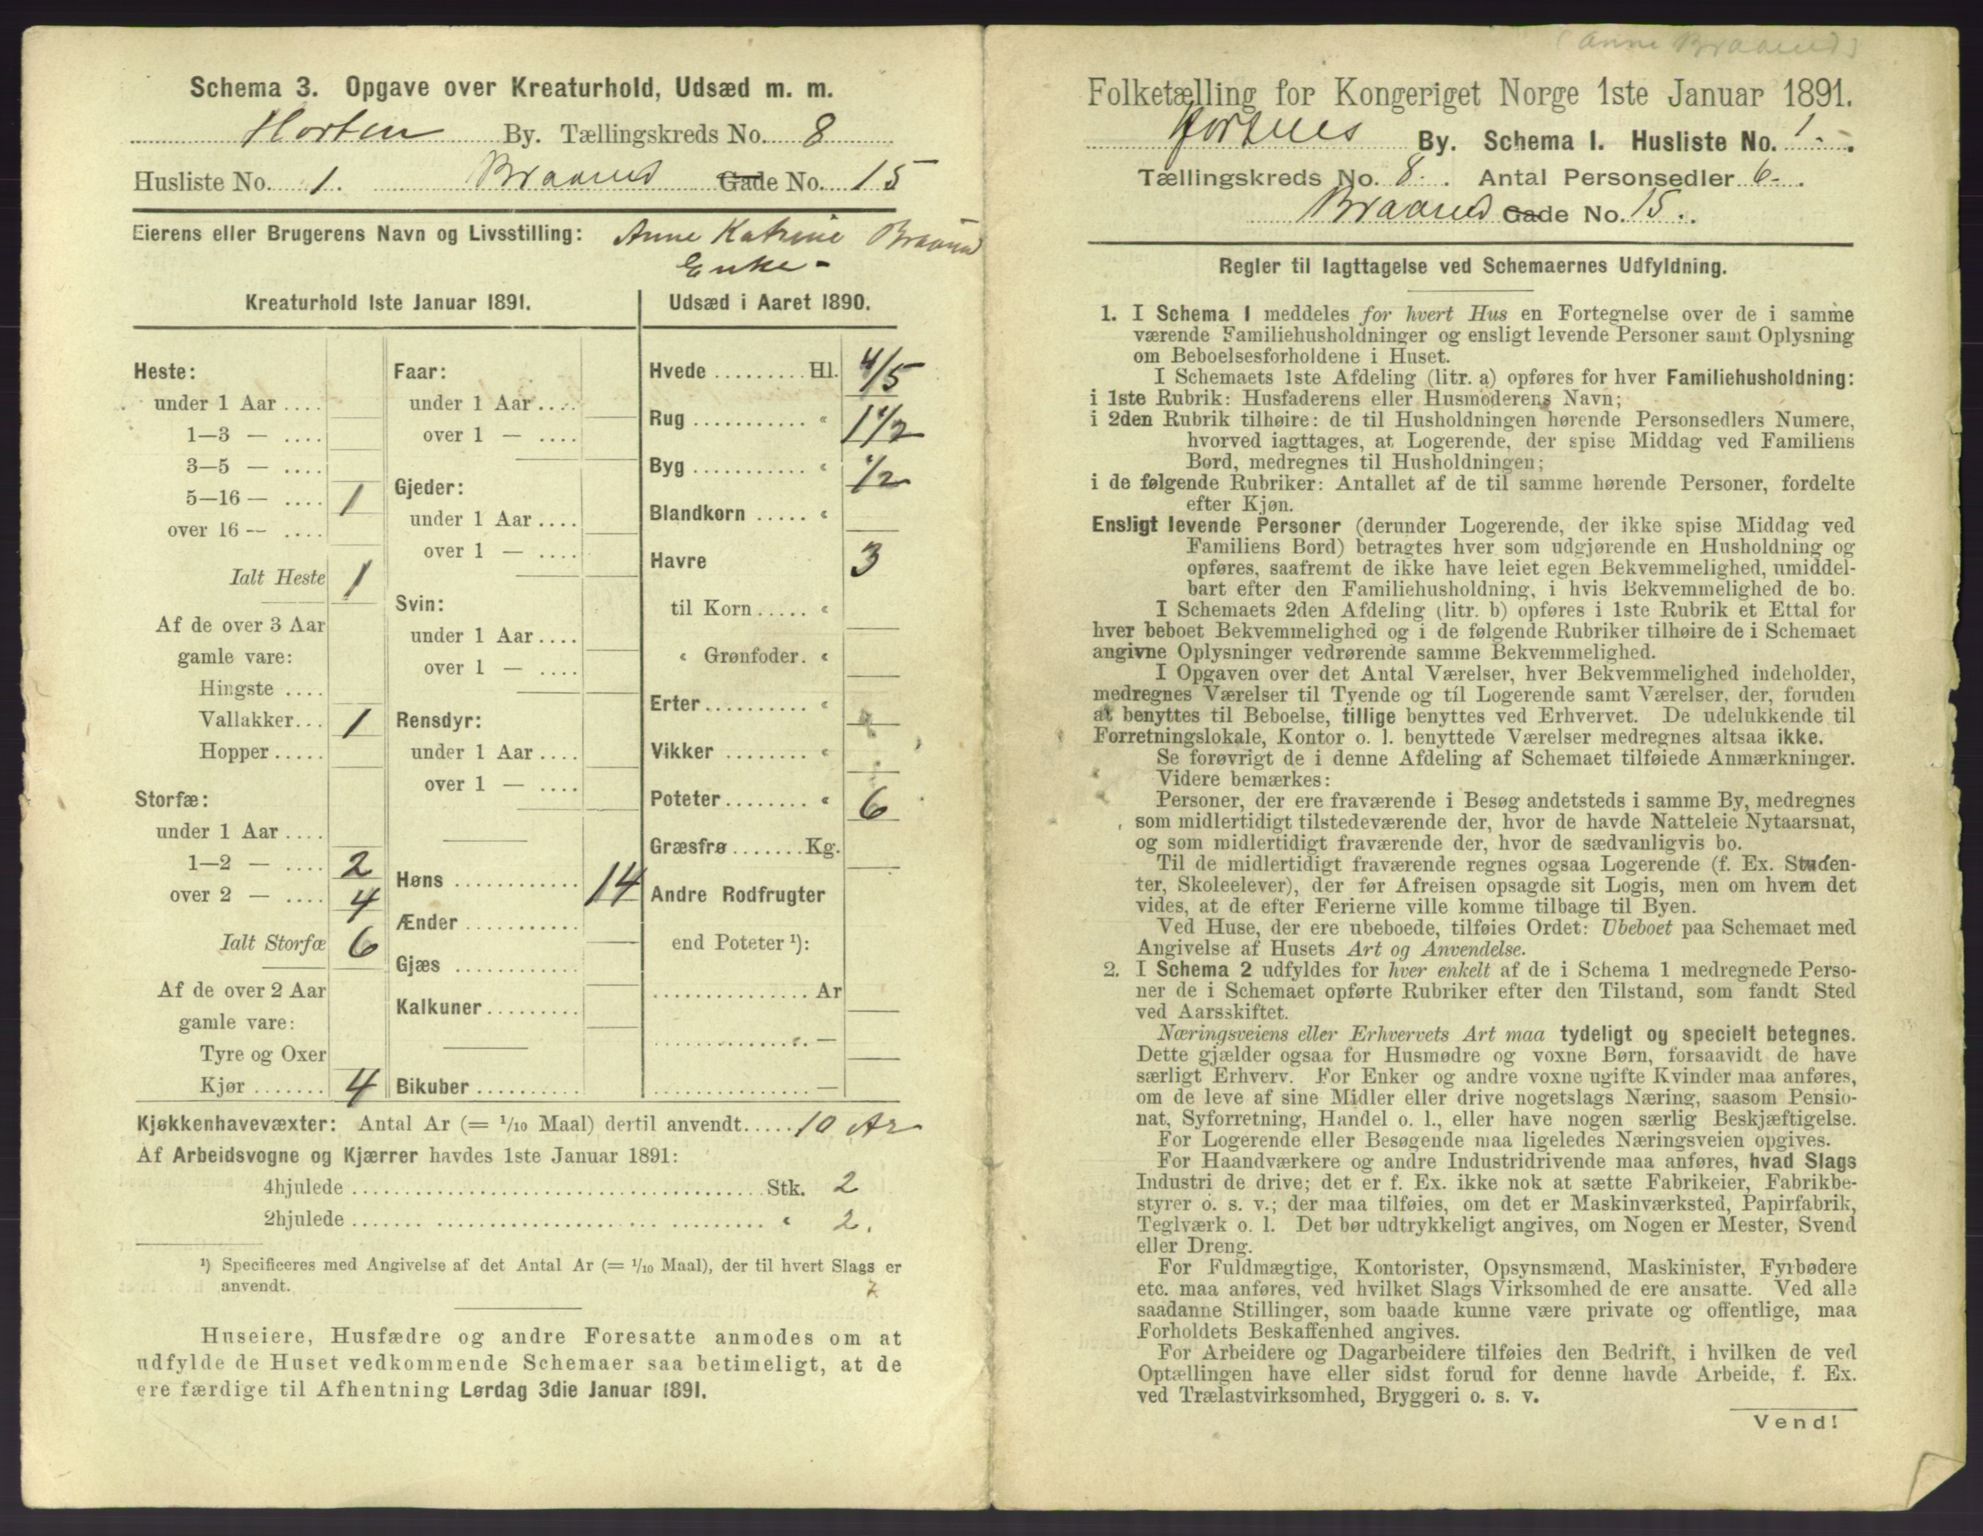 Schema 3. Opgave over Kreaturhold, Udsæd m. m.
Horten By. Tællingskreds No. 8
Husliste No. 1. Braarud Gade No. 15
Eierens eller Brugerens Navn og Livsstilling: Anne Katrine Braarud
Enke -
Kreaturhold 1ste Januar 1891.
Heste:
under 1 Aar ....
1—3 — ....
3—5 — ....
5—16 — .... 1
over 16 — ....
Ialt Heste 1
Af de over 3 Aar
gamle vare:
Hingste ....
Vallakker... 1
Hopper .....
Storfæ:
under 1 Aar ....
1—2 — .... 2
over 2 — .... 4
Ialt Storfæ 6
Af de over 2 Aar
gamle vare:
Tyre og Oxer
Kjør ....... 4
Faar:
under 1 Aar ....
over 1 — ....
Gjeder:
under 1 Aar ....
over 1 — ....
Svin:
under 1 Aar ....
over 1 — ....
Rensdyr:
under 1 Aar ....
over 1 — ....
Høns ........... 14
Ænder ...........
Gjæs ...........
Kalkuner .........
Bikuber ..........
Udsæd i Aaret 1890.
Hvede ......... Hl. 4/5
Rug ........... " 1 1/2
Byg ........... " 1/2
Blandkorn ..... "
Havre 3
til Korn ..... "
" Grønfoder. "
Erter .......... "
Vikker ........ "
Poteter ........ " 6
Græsfrø ....... Kg.
Andre Rodfrugter
end Poteter ¹):
............... Ar
............... —
............... —
Kjøkkenhavevæxter: Antal Ar (= 1/10 Maal) dertil anvendt..... 10 Ar
Af Arbeidsvogne og Kjærrer havdes 1ste Januar 1891:
4hjulede ........................................ Stk. 2
2hjulede ........................................ " 2.
¹) Specificeres med Angivelse af det Antal Ar (= 1/10 Maal), der til hvert Slags er
anvendt.
Huseiere, Husfædre og andre Foresatte anmodes om at
udfylde de Huset vedkommende Schemaer saa betimeligt, at de
ere færdige til Afhentning Lørdag 3die Januar 1891.
(Anne Braarud)
Folketælling for Kongeriget Norge 1ste Januar 1891.
Hortens By. Schema I. Husliste No. 1.
Tællingskreds No. 8. Antal Personsedler 6.
Braarud Gade No. 15.
Regler til Iagttagelse ved Schemaernes Udfyldning.
1. I Schema 1 meddeles for hvert Hus en Fortegnelse over de i samme
værende Familiehusholdninger og ensligt levende Personer samt Oplysning
om Beboelsesforholdene i Huset.
I Schemaets 1ste Afdeling (litr. a) opføres for hver Familiehusholdning:
i 1ste Rubrik: Husfaderens eller Husmoderens Navn;
i 2den Rubrik tilhøire: de til Husholdningen hørende Personsedlers Numere,
hvorved iagttages, at Logerende, der spise Middag ved Familiens
Bord, medregnes til Husholdningen;
i de følgende Rubriker: Antallet af de til samme hørende Personer, fordelte
efter Kjøn.
Ensligt levende Personer (derunder Logerende, der ikke spise Middag ved
Familiens Bord) betragtes hver som udgjørende en Husholdning og
opføres, saafremt de ikke have leiet egen Bekvemmelighed, umiddel-
bart efter den Familiehusholdning, i hvis Bekvemmelighed de bo.
I Schemaets 2den Afdeling (litr. b) opføres i 1ste Rubrik et Ettal for
hver beboet Bekvemmelighed og i de følgende Rubriker tilhøire de i Schemaet
angivne Oplysninger vedrørende samme Bekvemmelighed.
I Opgaven over det Antal Værelser, hver Bekvemmelighed indeholder,
medregnes Værelser til Tyende og til Logerende samt Værelser, der, foruden
at benyttes til Beboelse, tillige benyttes ved Erhvervet. De udelukkende til
Forretningslokale, Kontor o. l. benyttede Værelser medregnes altsaa ikke.
Se forøvrigt de i denne Afdeling af Schemaet tilføiede Anmærkninger.
Videre bemærkes:
Personer, der ere fraværende i Besøg andetsteds i samme By, medregnes
som midlertidigt tilstedeværende der, hvor de havde Natteleie Nytaarsnat,
og som midlertidigt fraværende der, hvor de sædvanligvis bo.
Til de midlertidigt fraværende regnes ogsaa Logerende (f. Ex. Studen-
ter, Skoleelever), der før Afreisen opsagde sit Logis, men om hvem det
vides, at de efter Ferierne ville komme tilbage til Byen.
Ved Huse, der ere ubeboede, tilføies Ordet: Ubeboet paa Schemaet med
Angivelse af Husets Art og Anvendelse.
2. I Schema 2 udfyldes for hver enkelt af de i Schema 1 medregnede Perso-
ner de i Schemaet opførte Rubriker efter den Tilstand, som fandt Sted
ved Aarsskiftet.
Næringsveiens eller Erhvervets Art maa tydeligt og specielt betegnes.
Dette gjælder ogsaa for Husmødre og voxne Børn, forsaavidt de have
særligt Erhverv. For Enker og andre voxne ugifte Kvinder maa anføres,
om de leve af sine Midler eller drive nogetslags Næring, saasom Pensio-
nat, Syforretning, Handel o. l., eller have nogen særlig Beskjæftigelse.
For Logerende eller Besøgende maa ligeledes Næringsveien opgives.
For Haandværkere og andre Industridrivende maa anføres, hvad Slags
Industri de drive; det er f. Ex. ikke nok at sætte Fabrikeier, Fabrikbe-
styrer o. s. v.; der maa tilføies, om det er Maskinværksted, Papirfabrik,
Teglværk o. l. Det bør udtrykkeligt angives, om Nogen er Mester, Svend
eller Dreng.
For Fuldmægtige, Kontorister, Opsynsmænd, Maskinister, Fyrbødere
etc. maa anføres, ved hvilket Slags Virksomhed de ere ansatte. Ved alle
saadanne Stillinger, som baade kunne være private og offentlige, maa
Forholdets Beskaffenhed angives.
For Arbeidere og Dagarbeidere tilføies den Bedrift, i hvilken de ved
Optællingen have eller sidst forud for denne havde Arbeide, f. Ex.
ved Trælastvirksomhed, Bryggeri o. s. v.
Vend!